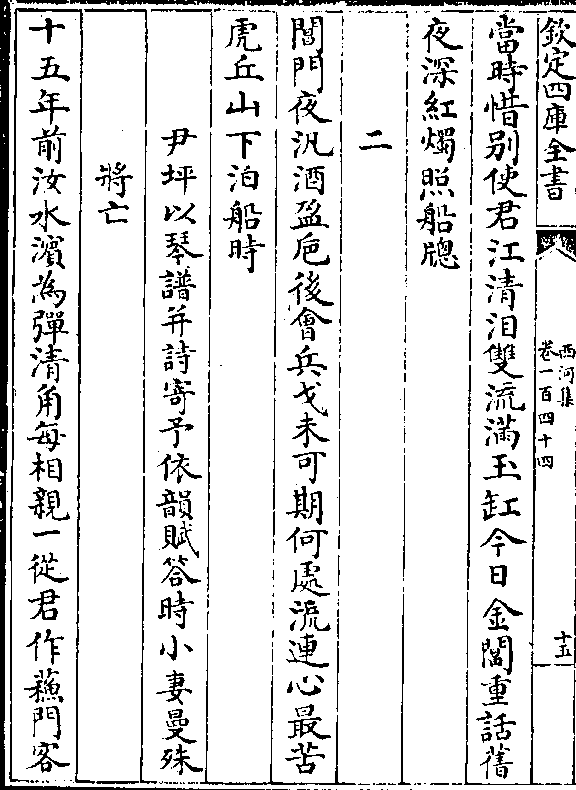 欽定四庫全書
西河集
卷一百四十四
十五
當時惜别使君江清泪雙流滿玉缸今日金閶重話舊
夜深紅燭照船牕
二
閶門夜汎酒盈巵後會兵戈未可期何處流連心最苦
虎丘山下泊船時
尹坪以琴譜并詩寄予依韻賦答時小妻曼殊
將亡
十五年前汝水濵為彈清角每相親一從君作蘓門客